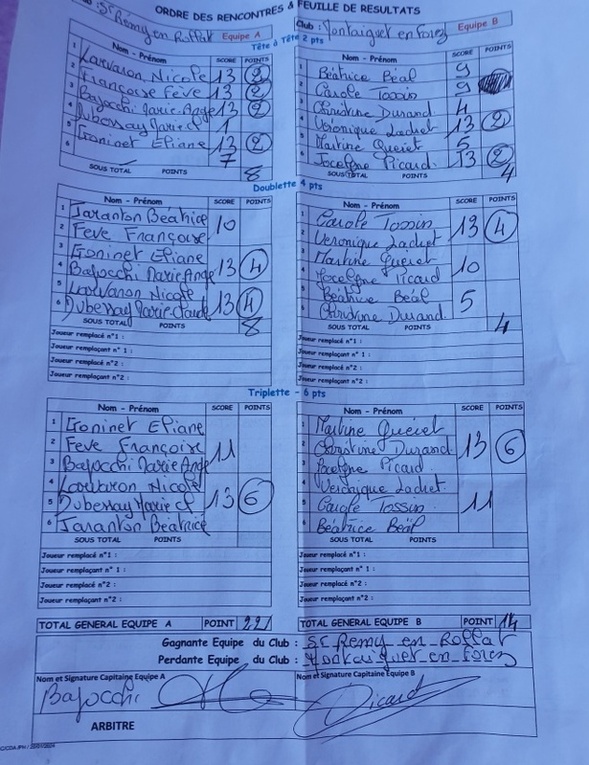 ORDRE DES RENCONTRES & FEUILLE DE RESULTATS
St Remy en Rollat Equipe A Club : Montaiguet en forez Equipe B
Tête à Tête 2 pts
Nom - Prénom SCORE POINTS Nom - Prénom SCORE POINTS
1 Larvaron Nicole 13 2 Béatrice Béal 9
2 Françoise Feve 13 2 Carole Tossin 9
3 Bajocchi Marie Ange 13 2 Christine Durand 4
4 Dubessay Marie cl 1 Véronique Laduet 13 2
5 Goninet Eliane 13 2 Martine Queret 5
7 Jocelyne Picard 13 2
SOUS TOTAL POINTS 8 SOUS TOTAL POINTS 4
Doublette 4 pts
Nom - Prénom SCORE POINTS Nom - Prénom SCORE POINTS
1 Taranton Béatrice 10 Carole Tossin 13 4
2 Feve Françoise Veronique Laduet
3 Goninet Eliane 13 4 Martine Queret 10
4 Bajocchi Marie Ange Jocelyne Picard
5 Larvaron Nicole 13 4 Béatrice Béal 5
6 Dubessay Marie-claude Christine Durand
SOUS TOTAL POINTS 8 SOUS TOTAL POINTS 4
Joueur remplacé n°1 : Joueur remplacé n°1 :
Joueur remplaçant n° 1 : Joueur remplaçant n° 1 :
Joueur remplacé n°2 : Joueur remplacé n°2 :
Joueur remplaçant n°2 : Joueur remplaçant n°2 :
Triplette - 6 pts
Nom - Prénom SCORE POINTS Nom - Prénom SCORE POINTS
1 Goninet Eliane 11 Martine Queret 13 6
2 Feve Françoise Christine Durand
3 Bajocchi Marie Ange Jocelyne Picard
4 Larvaron Nicole 13 6 Veronique Laduet 11
5 Dubessay Marie cl Carole Tossin
6 Taranton Beatrice Béatrice Béal
SOUS TOTAL POINTS SOUS TOTAL POINTS
Joueur remplacé n°1 : Joueur remplacé n°1 :
Joueur remplaçant n° 1 : Joueur remplaçant n° 1 :
Joueur remplacé n°2 : Joueur remplacé n°2 :
Joueur remplaçant n°2 : Joueur remplaçant n°2 :
TOTAL GENERAL EQUIPE A POINT 22 TOTAL GENERAL EQUIPE B POINT 14
Gagnante Equipe du Club : St Remy en Rollat
Perdante Equipe du Club : Montaiguet en forez
Nom et Signature Capitaine Equipe A Nom et Signature Capitaine Equipe B
Bajocchi Picard
ARBITRE